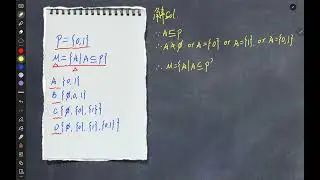 P={0,1}
M={A|A⊆P}
A {0,1}
B {∅,0,1}
C {∅,{0},{1}}
D {∅,{0},{1},{0,1}}
解Sol.
∵ A⊆P
∴ A=∅ or A={0} or A={1} or A={0,1}
∴ M={A|A⊆P}